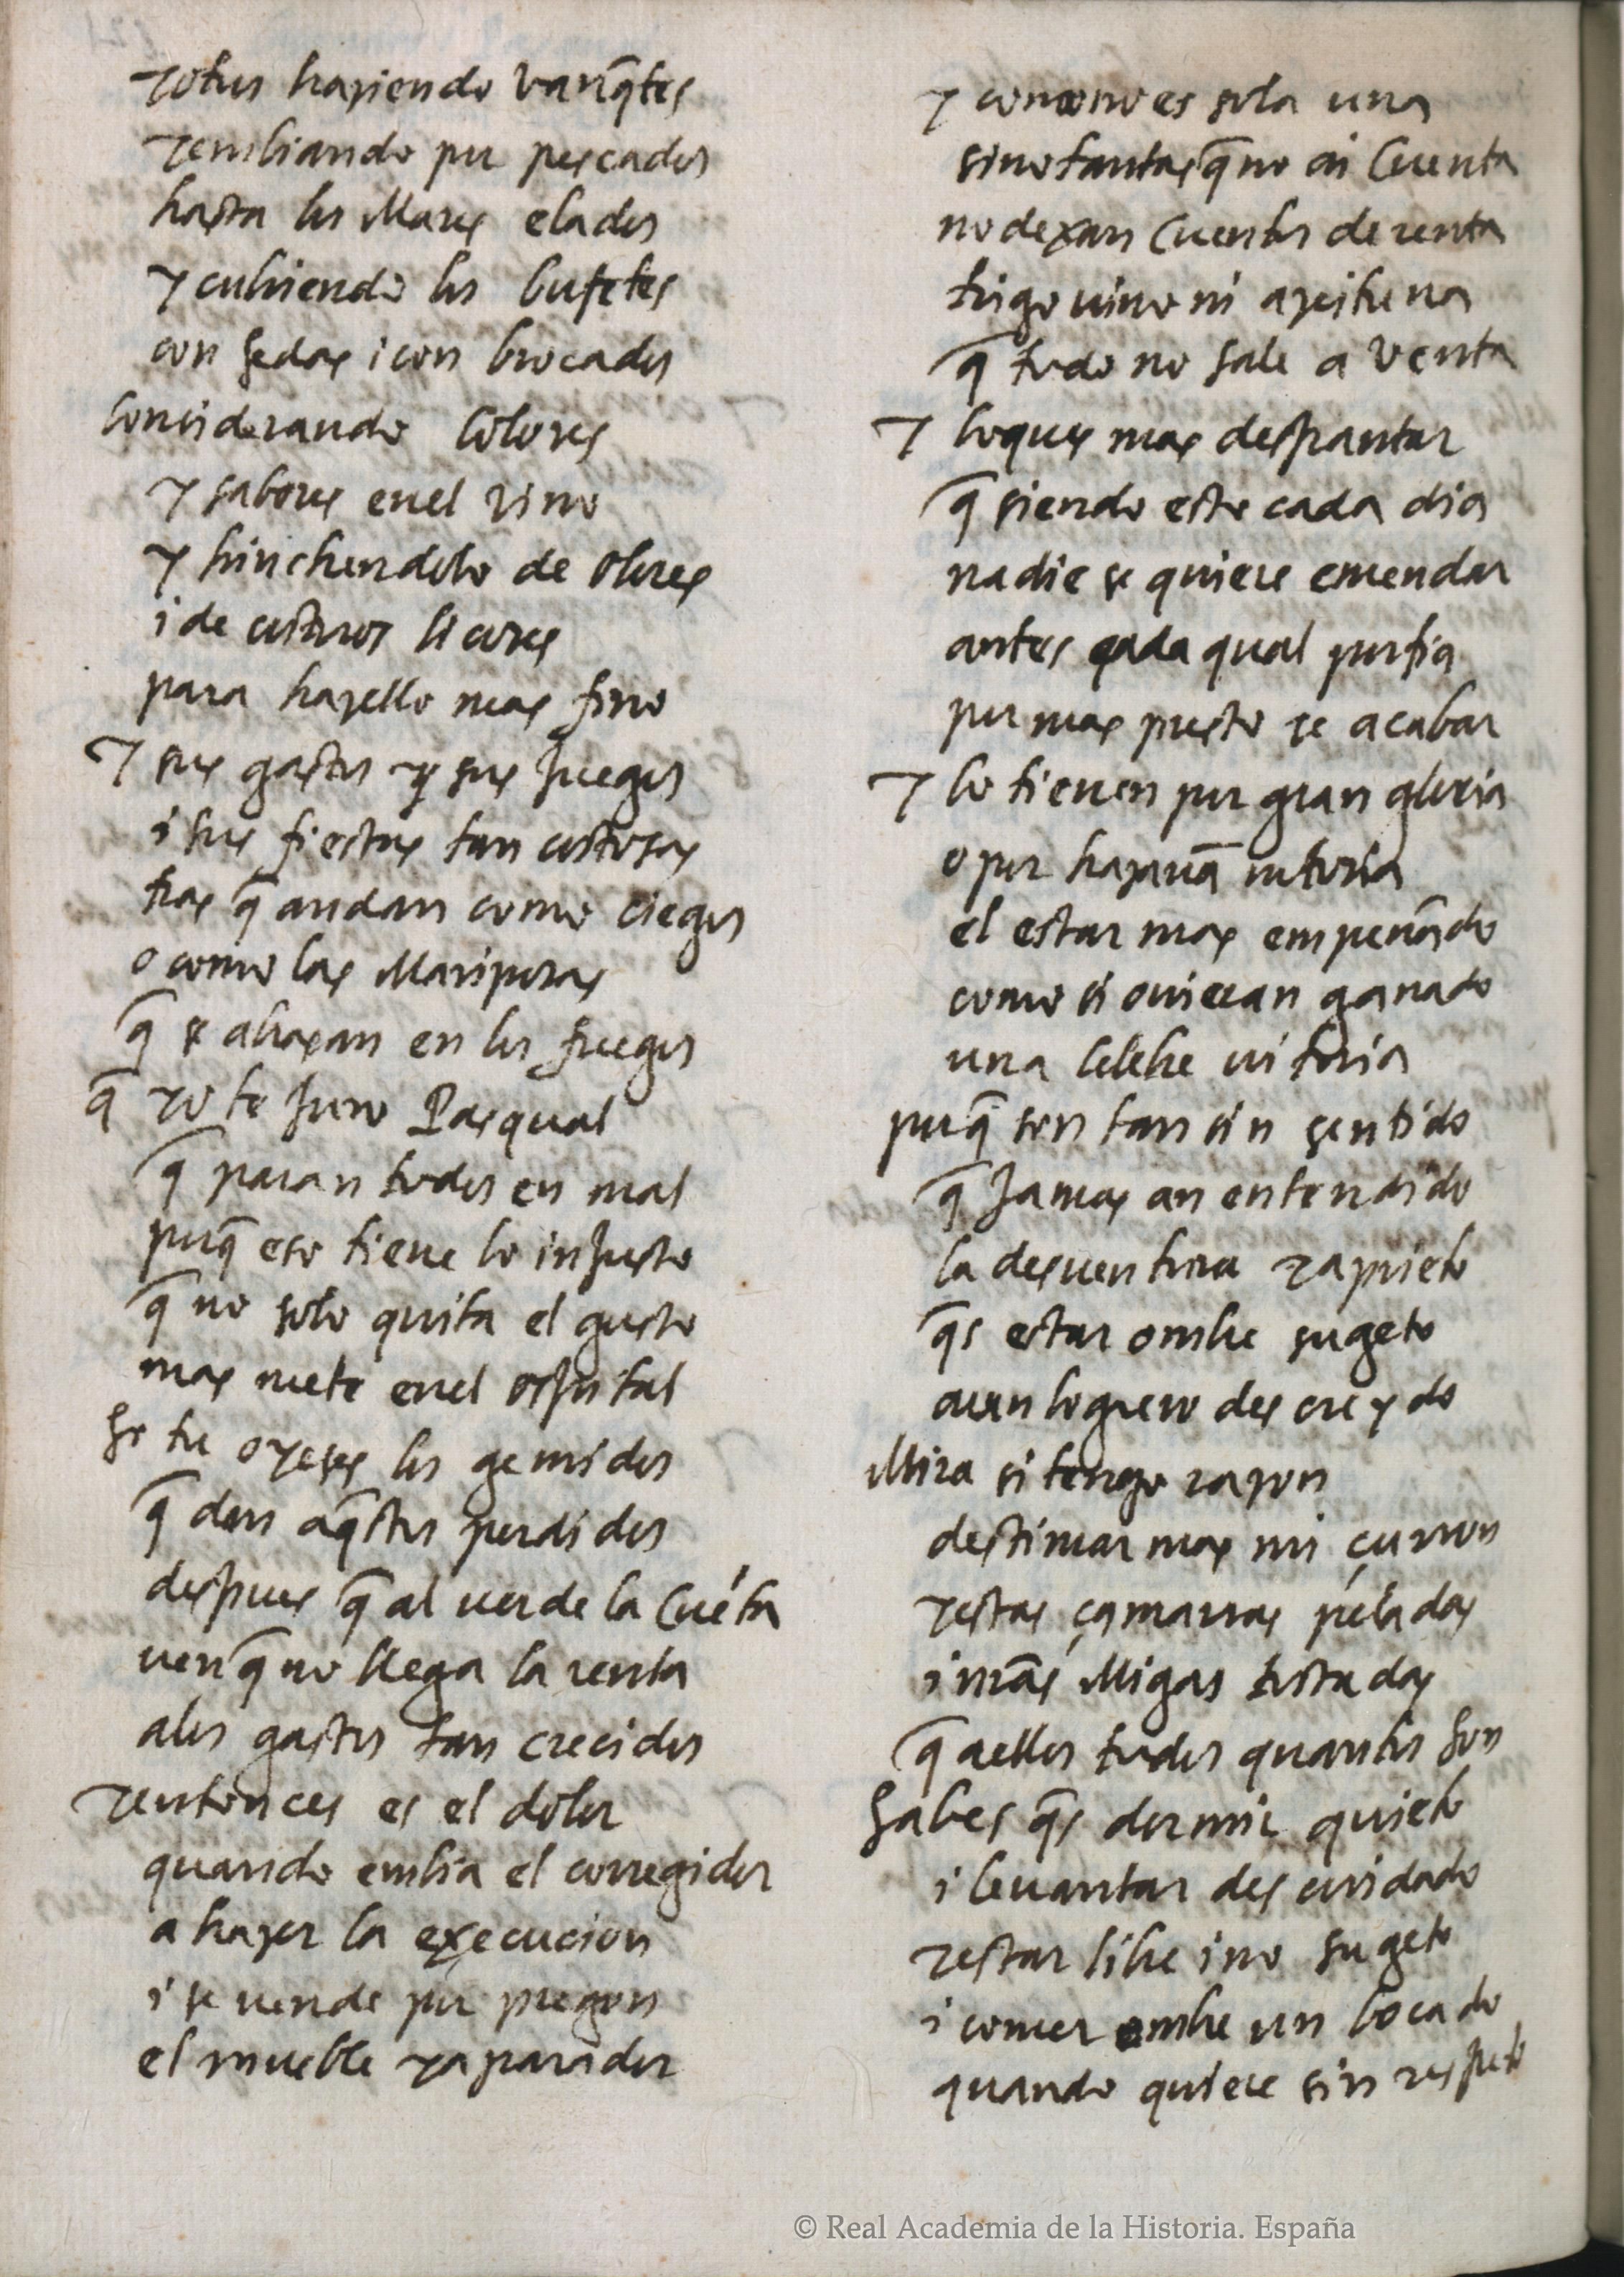 yotros haziendo vanq̃tes
yenbiando por pescados
hasta los Mares elados
y cubriendo los bufetes
con sedas i con brocados
considerando colores
y sabores enel vino
y hinchendolo de olores
i de costosos licores
para hazello mas fino
y sus gastos y sus Juegos
i sus fiestas tan costosas
tras q̃ andan como ciegos
o como las Mariposas
q̃ se abrasan en los fuegos
q̃ yo te Juro Pasqual
q̃ paran todos en mal
porq̃ eso tiene lo inJusto
q̃ no solo quita el gusto
mas mete enel ospital
So tu oyeses los gemidos
q̃ dan aq̃stos perdidos
despues q̃ al verde la Cuẽta
ven q̃ no llega la renta
alos gastos tan crecidos
yentonces es el dolor
quando enbia el corregidor
a hazer la execucion
i se vende por pregon
el mueble yaparador
y como no es sola una
sino tantas q̃ no ai Cuenta
no dexan Cuentos de renta
trigo vino ni azeituna
q̃ todo no sale a Venta
y loques mas despantar
q̃ siendo esto cada dia
nadie se quiere emendar
antes cada qual porfia
por mas presto se acabar
y lo tienen por gran gloria
o por hazaña notoria
el estar mas empeñado
como si ovieran ganado
una celebre vitoria
porq̃ son tan sin sentido
q̃ Jamas an entendido
la desventura yaprieto
q̃s estar onbre sugeto
aun logrero descreydo
Mira si tengo razon
destimar mas mi çurron
yestas çamarras peladas
i mãs Migas tostadas
q̃ aellos todos quantos son
Sabes q̃s dormir quieto
i levantar descuidado
yestar libre i no sugeto
i comer onbre un bocado
quando quiere sin respeto
© Real Academia de la Historia. España